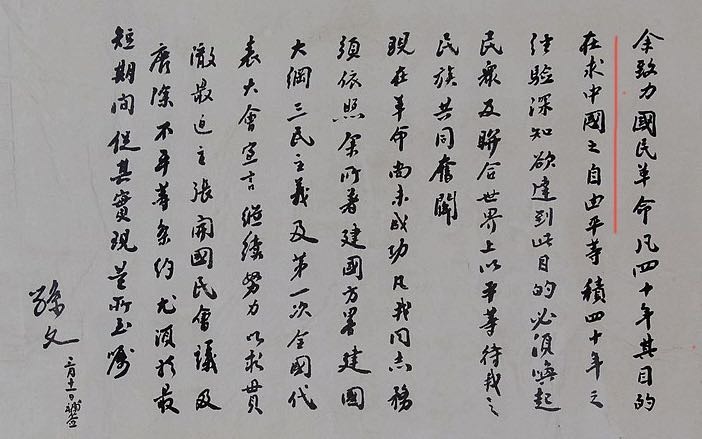 余致力國民革命凡四十年其目的
在求中國之自由平等積四十年之
經驗深知欲達到此目的必須喚起
民眾及聯合世界上以平等待我之
民族共同奮鬭
現在革命尚未成功凡我同志務
須依照余所著建國方畧建國
大綱三民主義及第一次全國代
表大會宣言繼續努力以求貫
澈最近主張開國民會議及
廢除不平等條約尤須於最
短期間促其實現是所至囑
孫文
二月十一日補簽